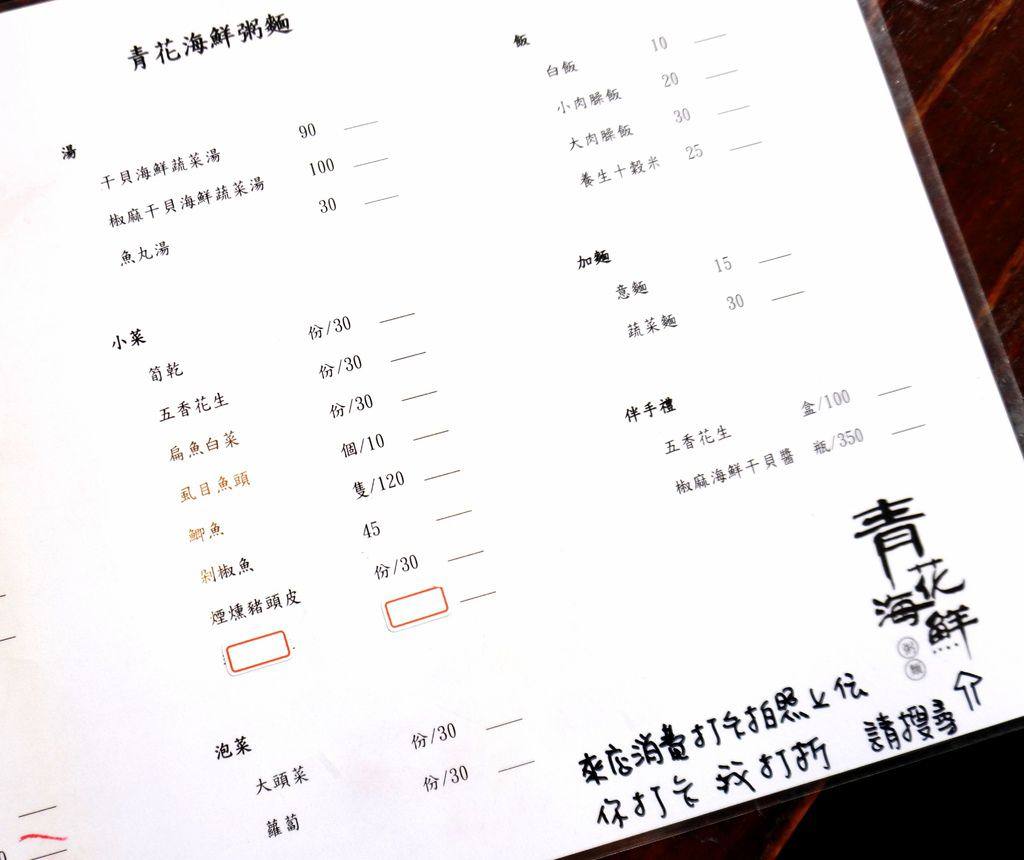 青花海鮮粥麵
湯
干貝海鮮蔬菜湯 90
椒麻干貝海鮮蔬菜湯 100
魚丸湯 30
小菜
筍乾 份/30
五香花生 份/30
扁魚白菜 份/30
虱目魚頭 個/10
鯽魚 隻/120
剁椒魚 45
煙燻豬頭皮 份/30
泡菜
大頭菜 份/30
蘿蔔 份/30
飯
白飯 10
小肉臊飯 20
大肉臊飯 30
養生十穀米 25
加麵
意麵 15
蔬菜麵 30
伴手禮
五香花生 盒/100
椒麻海鮮干貝醬 瓶/350
青花海鮮
粥麵
來店消費打卡拍照上伝
你打卡 我打折 請搜尋